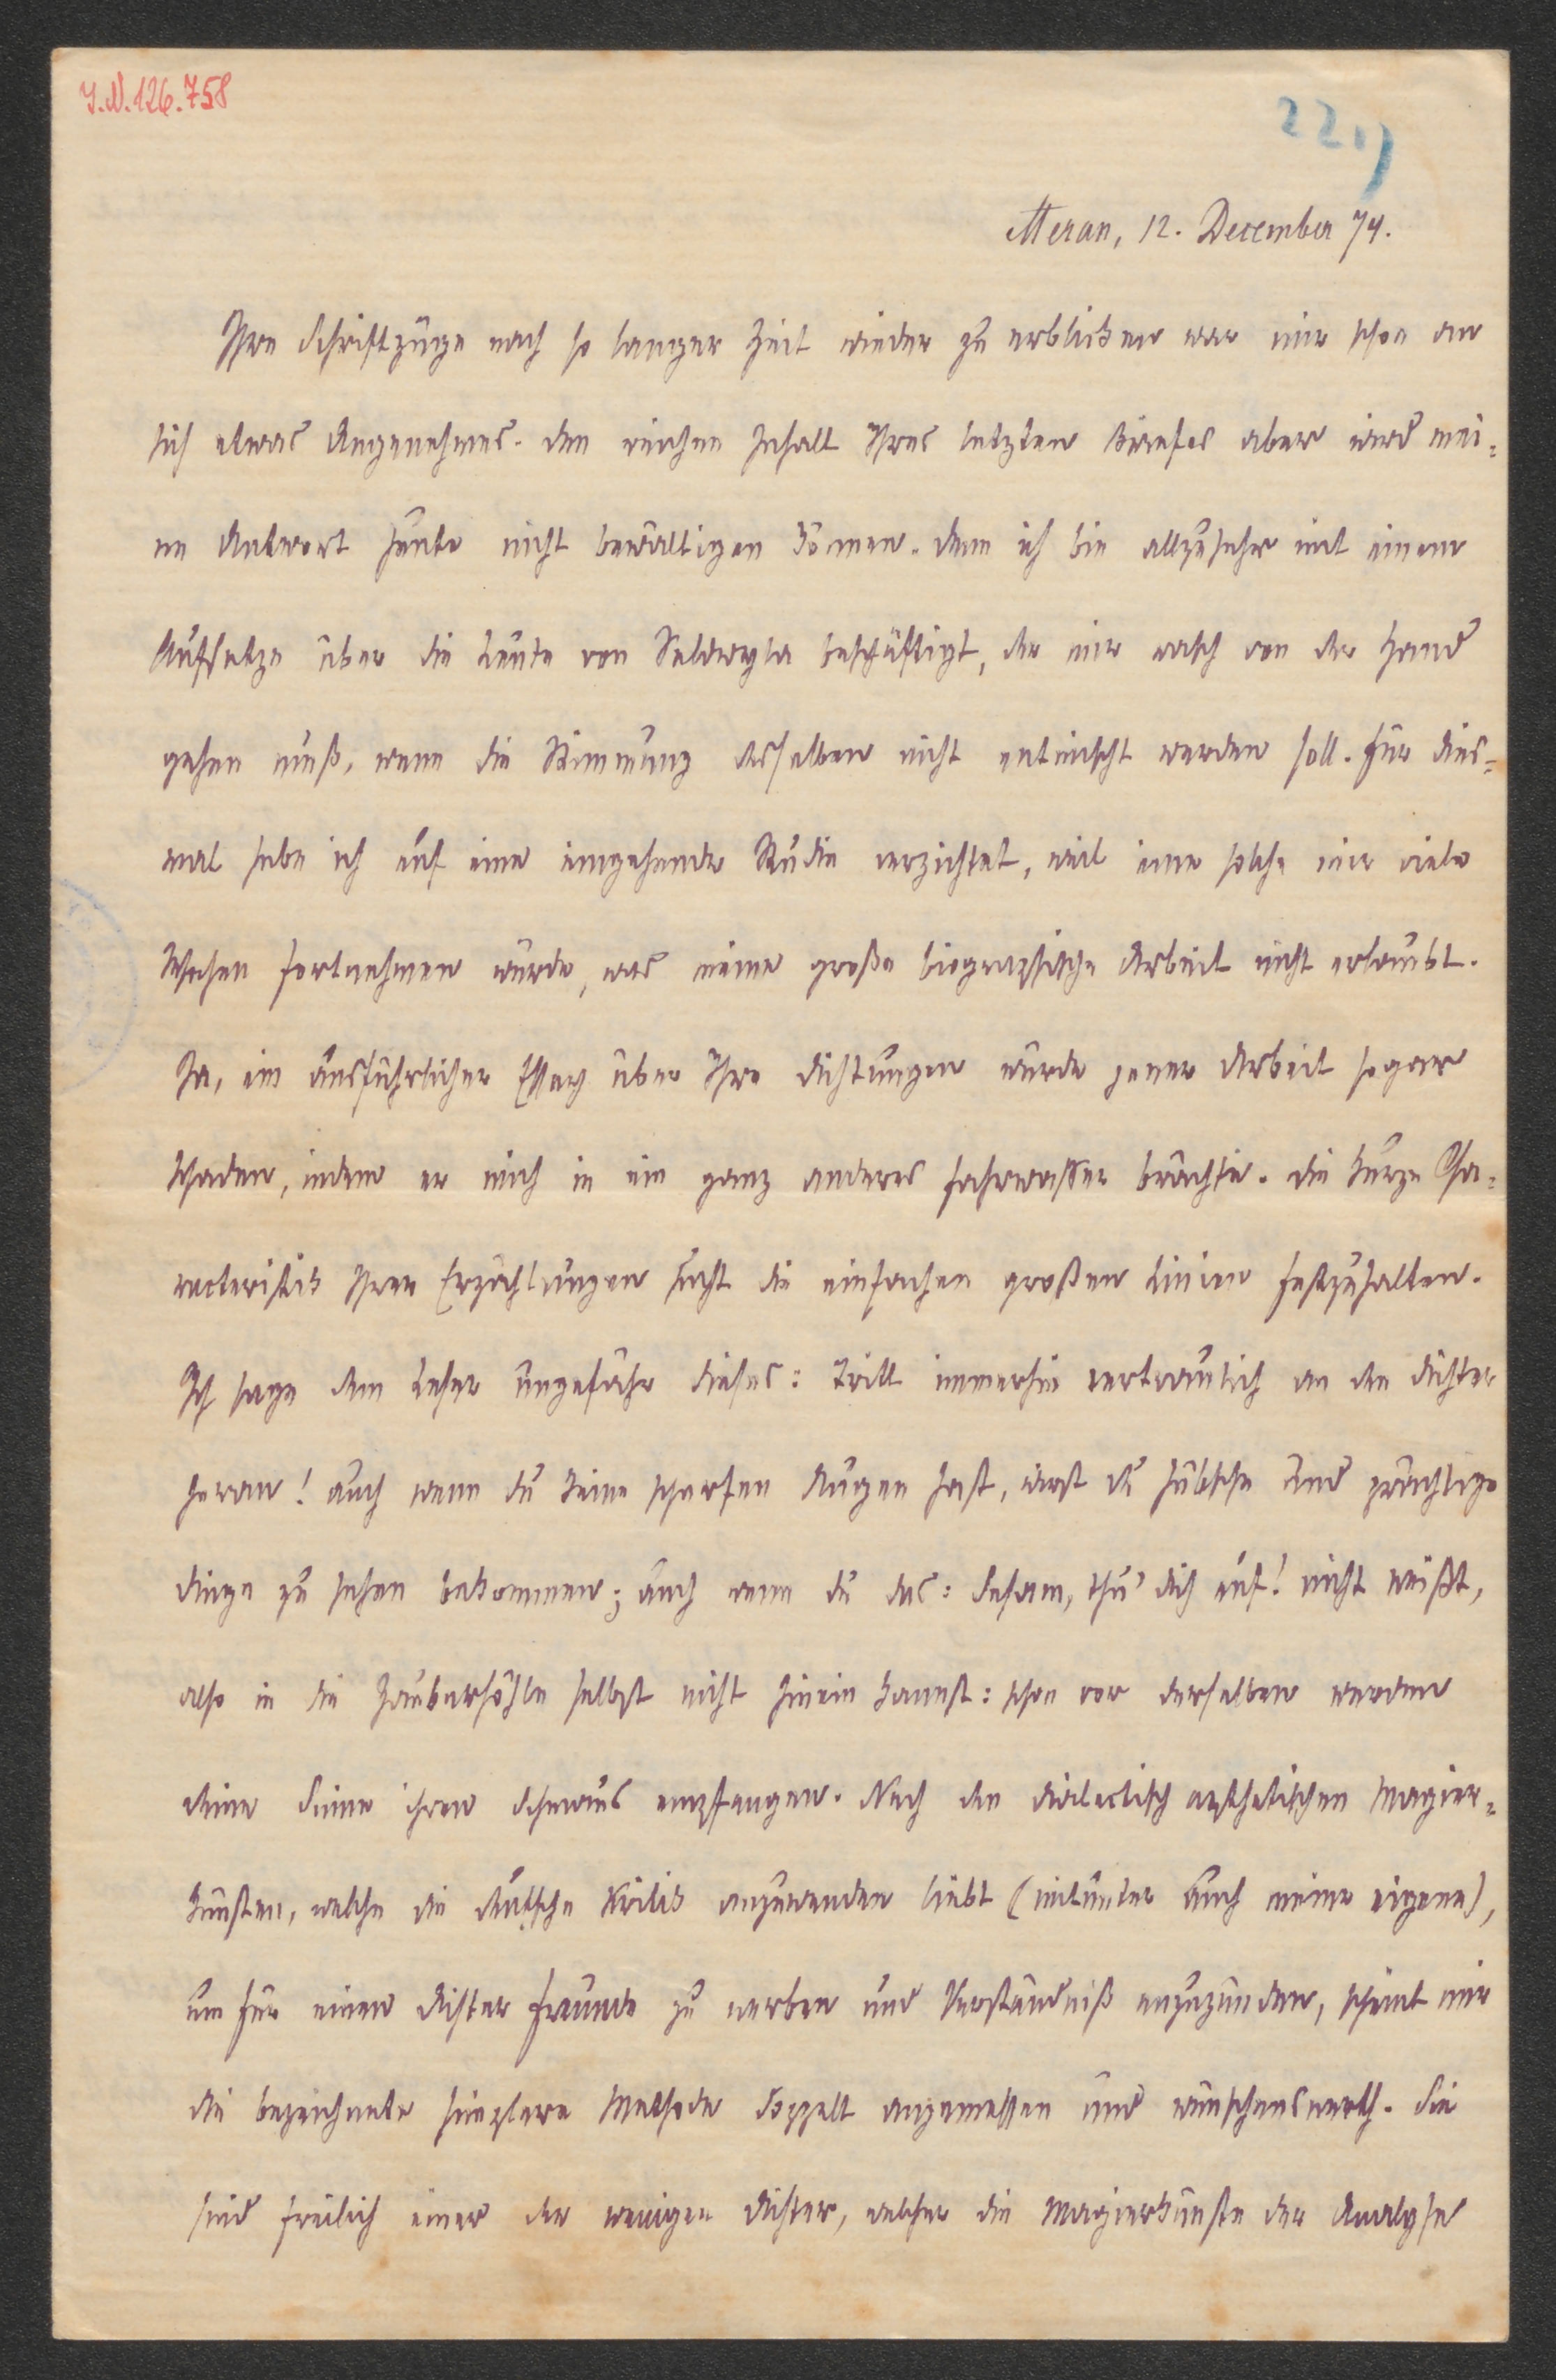 I.N. 126.758
22.)
Meran, 12. December 74.
Ihre Schriftzüge nach so langer Zeit wieder zu erblicken war mir schon an
sich etwas Angenehmes. Den reichen Inhalt Ihres letzten Briefes aber wird mei-
ne Antwort heute nicht bewältigen können. Denn ich bin allzusehr mit einem
Aufsatze über die Leute von Seldwyla beschäftigt, der mir rasch von der Hand
gehen muß, wenn die Stimmung desselben nicht verwischt werden soll. Für dies-
mal habe ich auf eine eingehende Studie verzichtet, weil eine solche mir viele
Wochen fortnehmen würde, was meine große biographische Arbeit nicht erlaubt.
Ja, ein ausführlicher Essay über Ihre Dichtungen würde jener Arbeit sogar
schaden, indem er mich in ein ganz anderes Fahrwasser brächte. Die kurze Cha-
racteristik Ihrer Erzählungen sucht die einfachen großen Linien festzuhalten.
Ich sage dem Leser ungefähr dieses: Tritt immerhin vertraulich an den Dichter
heran! auch wenn du keine scharfen Augen hast, wirst du hübsche und prächtige
Dinge zu sehen bekommen; auch wenn du das: Sesam, thu' dich auf! nicht weißt,
also in die Zauberhöhle selbst nicht hinein kannst: schon vor derselben werden
deine Sinne ihren Schmaus empfangen. Nach den dialectisch aesthetischen Magier-
künsten, welche die deutsche Kritik anzuwenden liebt (mitunter auch meine eigene),
um für einen Dichter Freunde zu werben und Verständniß anzuzünden, scheint mir
die bezeichnete simplere Methode doppelt angemessen und wünschenswerth. Sie
sind freilich einer der wenigen Dichter, welcher die Magierkünste der Analyse